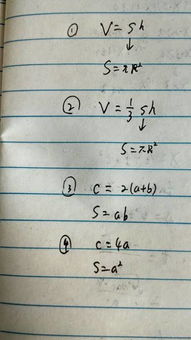 ① V = Sh
↓
S = πR²
② V = \frac{1}{3} Sh
↓
S = πR²
③ C = 2(a+b)
S = ab
④ C = 4a
S = a²